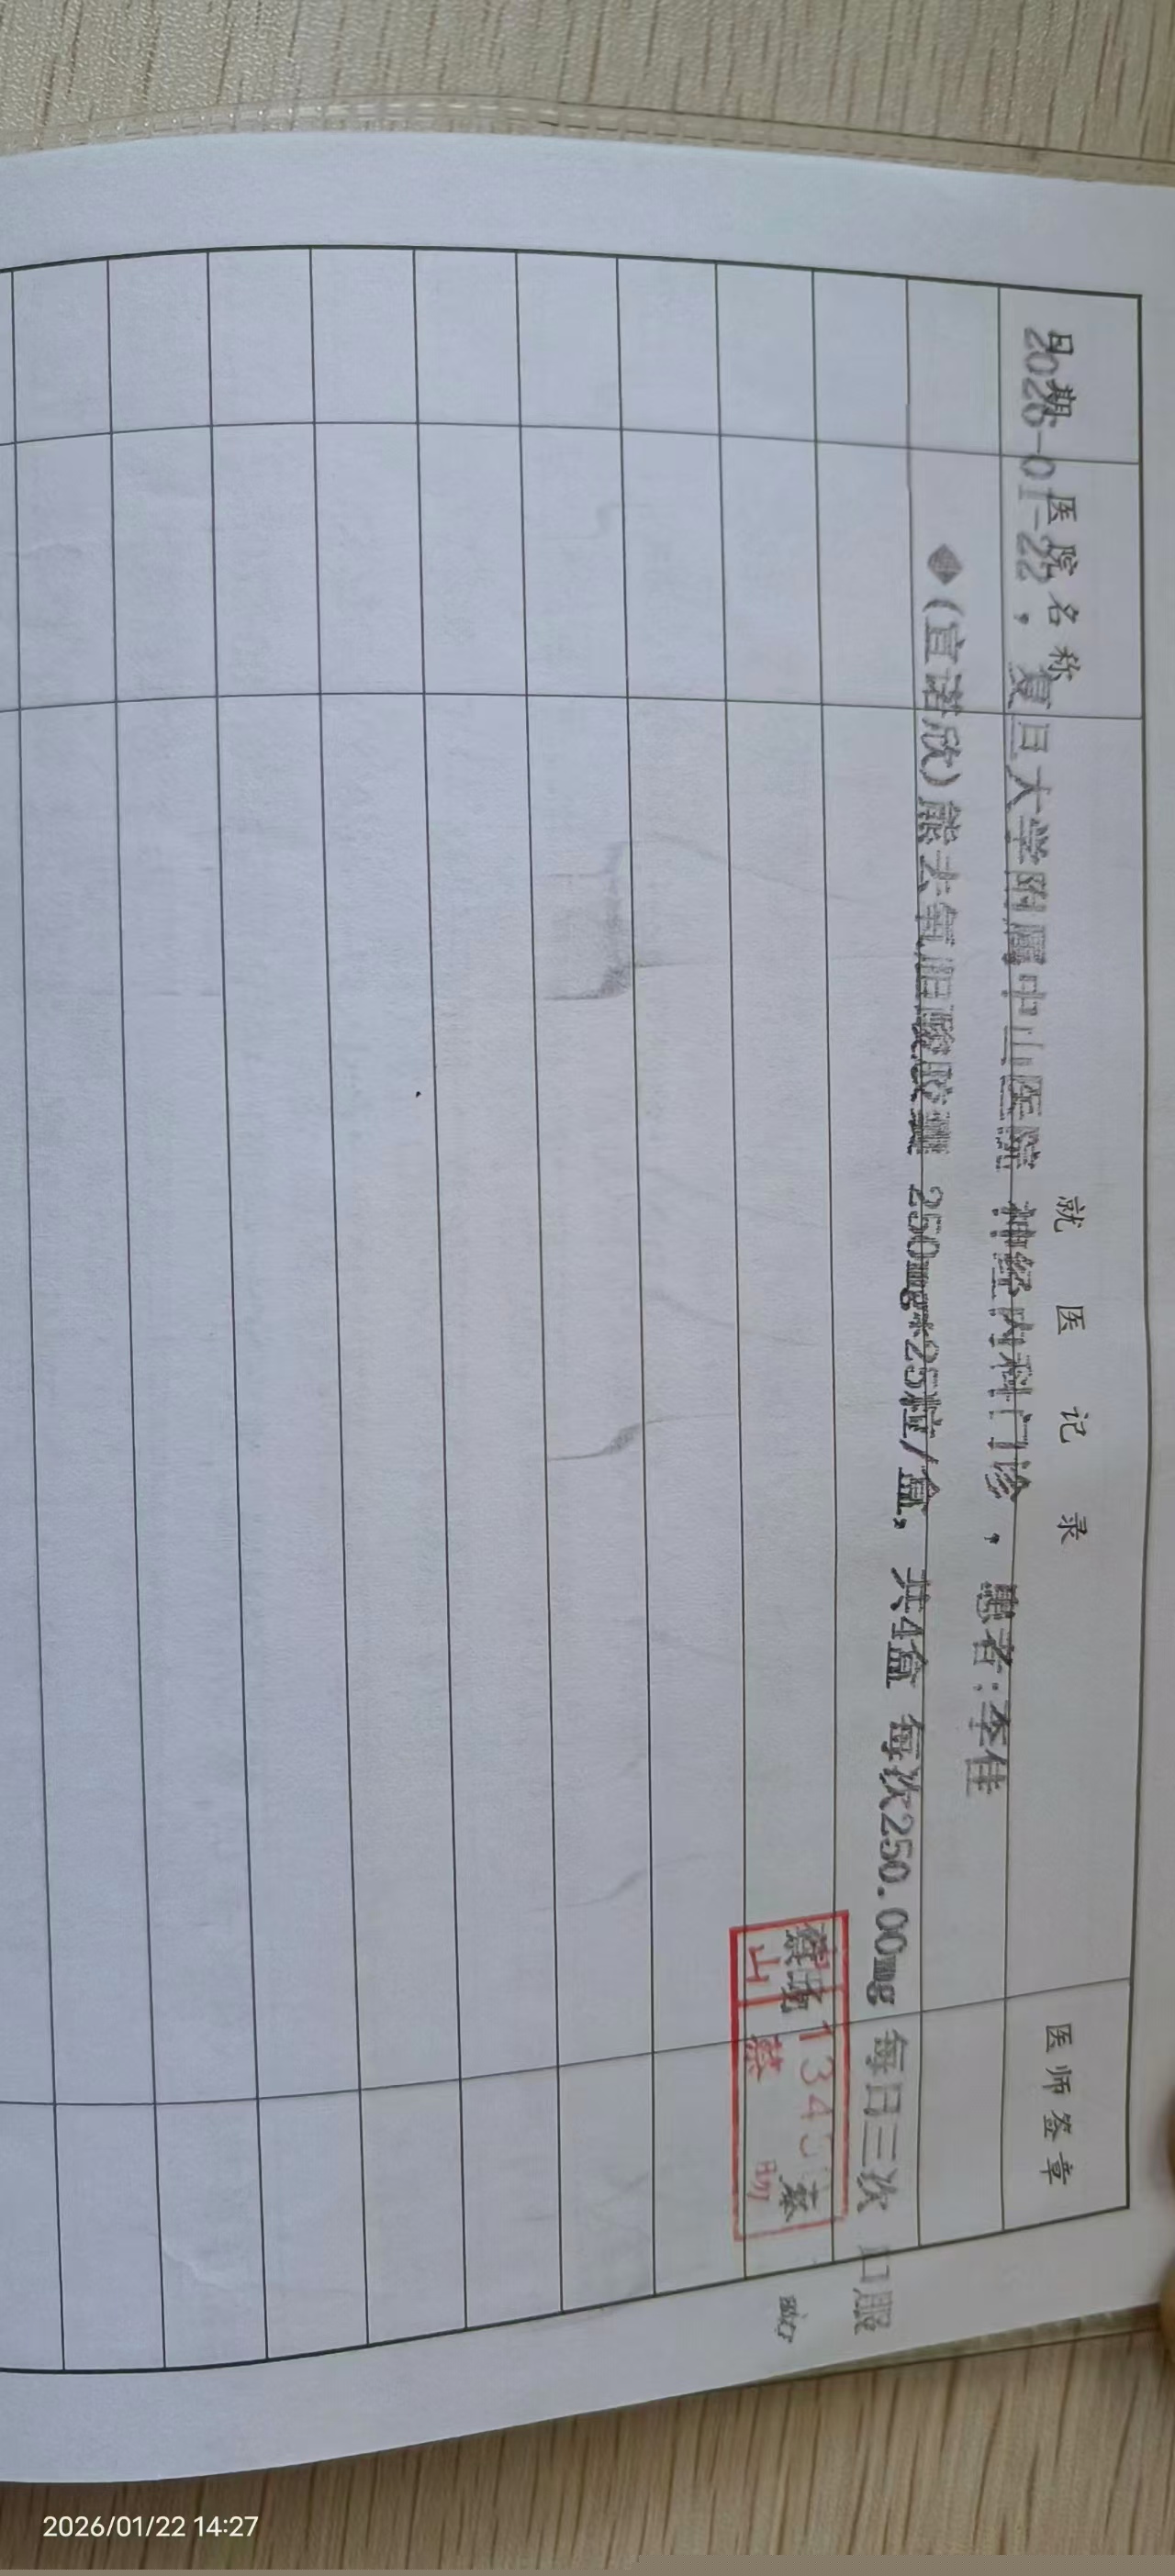 日期 医院名称 就医记录 医师签章
2026-01-22, 复旦大学附属中山医院 神经内科门诊, 患者:李佳
◆(宣诺欣)熊去氧胆酸胶囊 250mg*25粒/盒, 共4盒 每次250.00mg 每日三次 口服
1345 蔡
山 蔡
2026/01/22 14:27